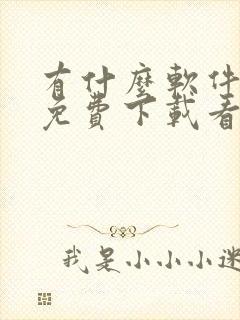 有什麼軟件
免費下載看
我是小小小迷